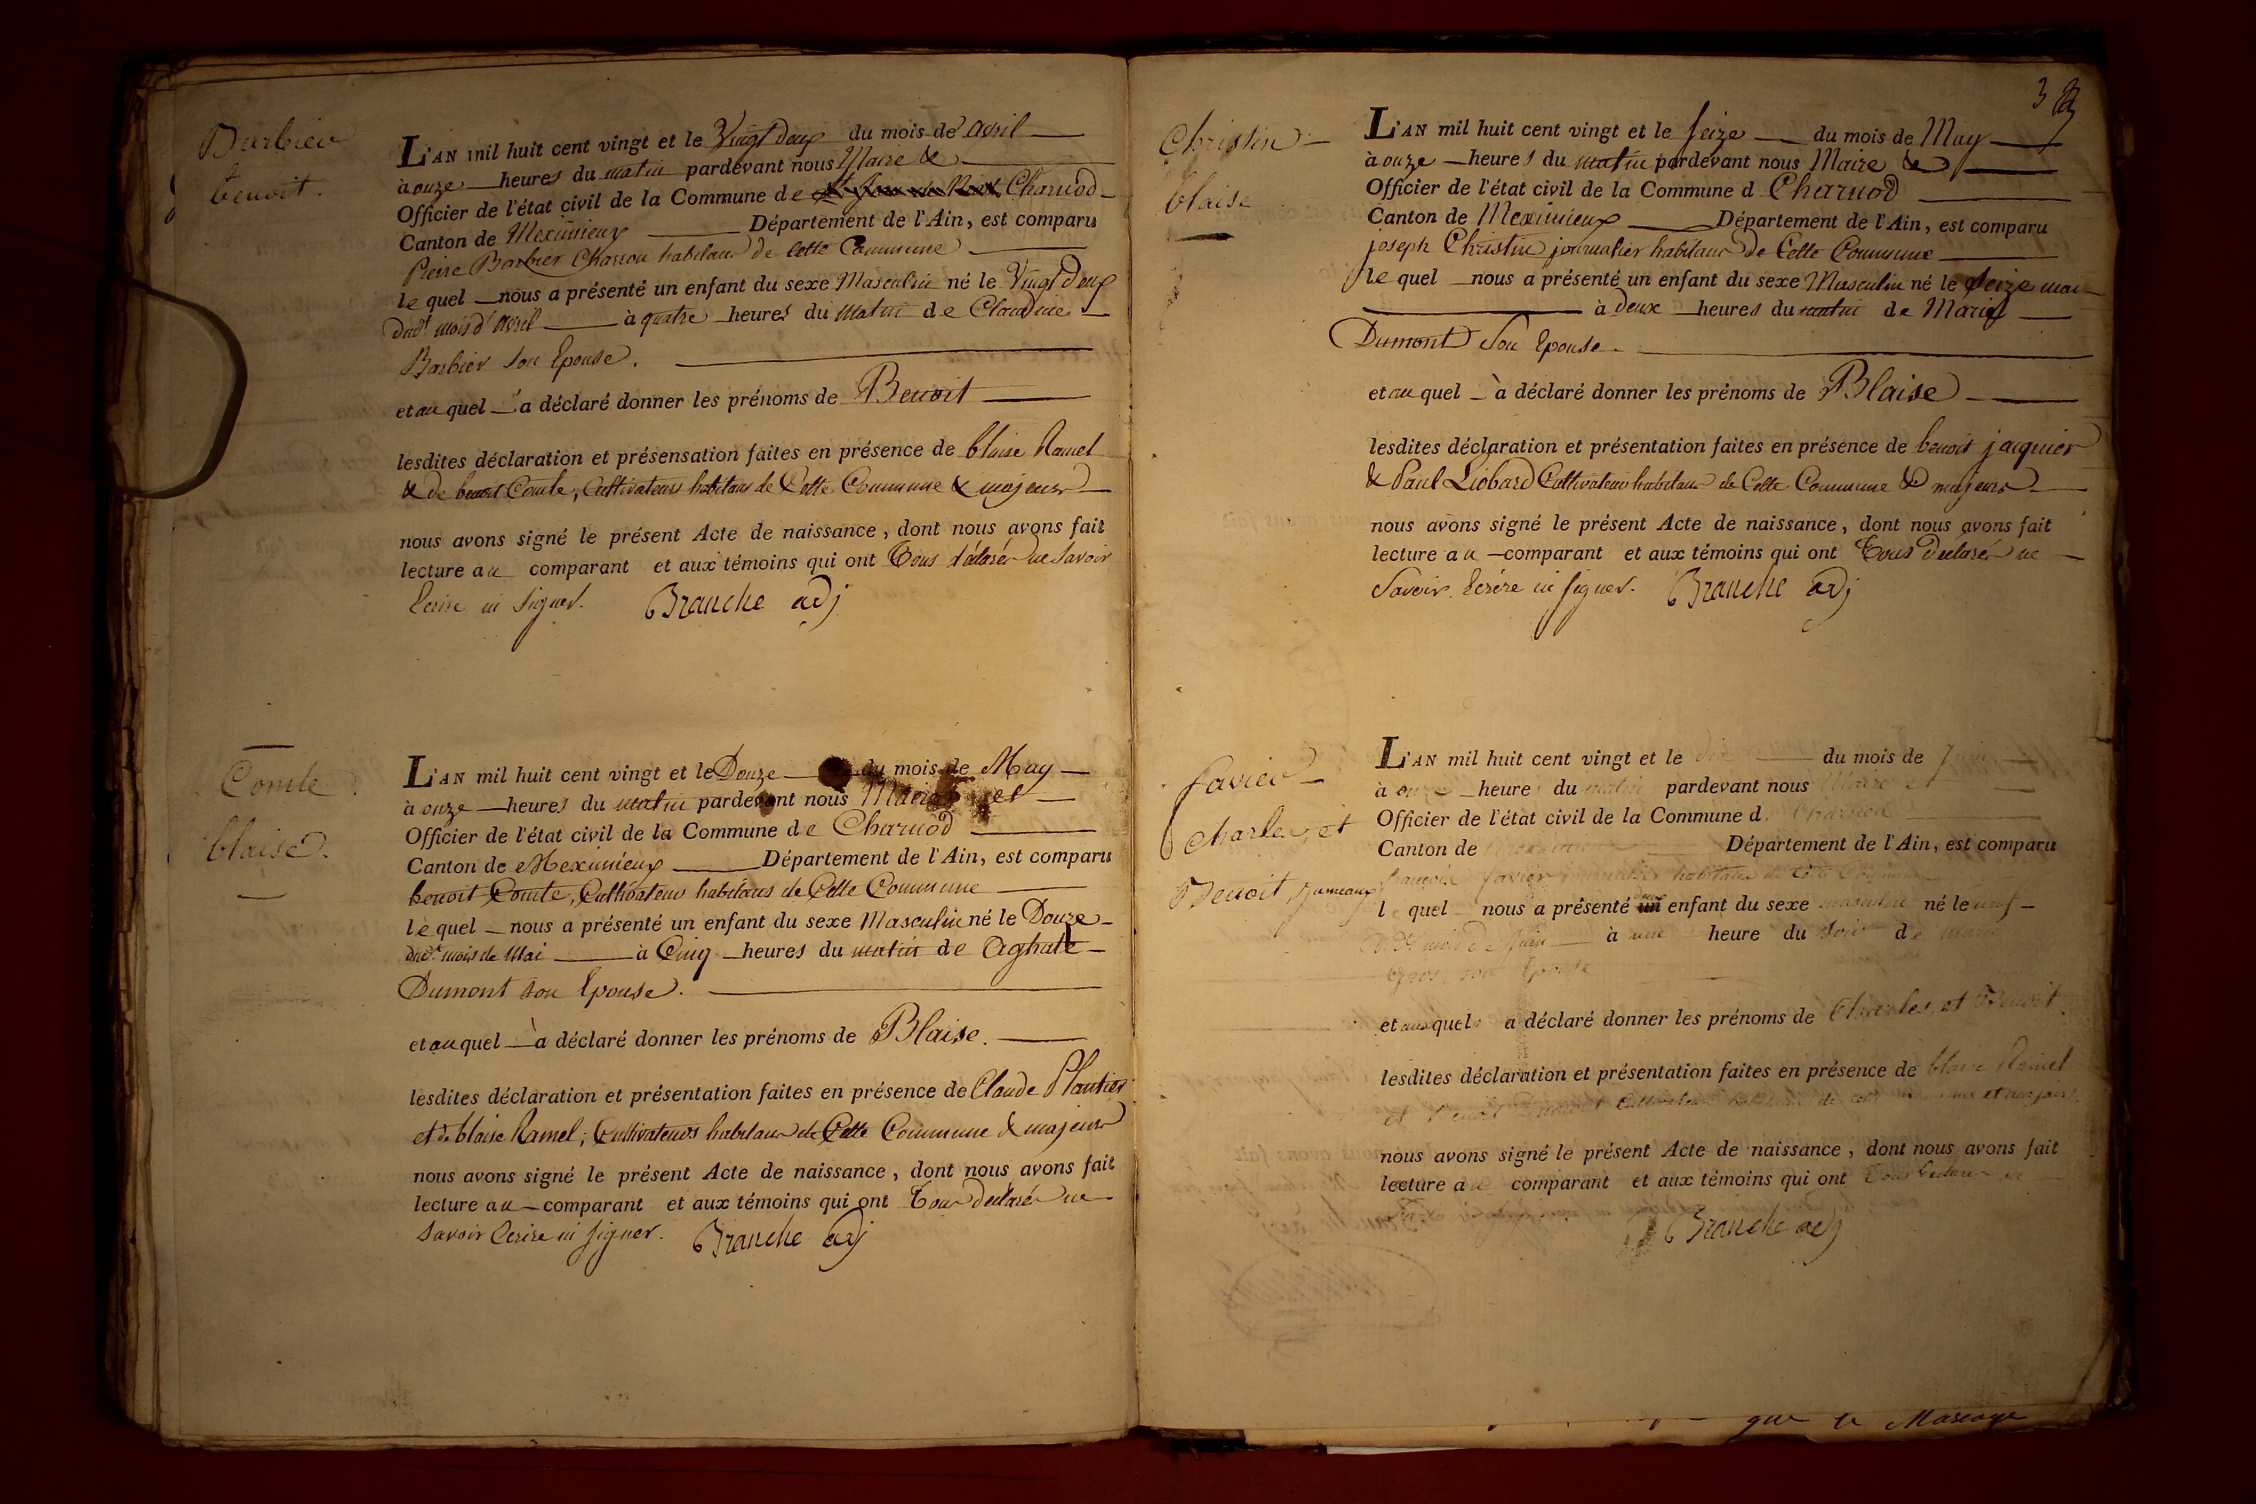 Barbier
benoit.
L'AN mil huit cent vingt et le Vingt deux du mois de avril
à onze heures du matin pardevant nous Maire &
Officier de l'état civil de la Commune de Charnod
Canton de Meximieux Département de l'Ain, est comparu
Pierre Barbier Charron habitant de Cette Commune
le quel nous a présenté un enfant du sexe Masculin né le Vingt Deux
dud.t mois d'avril à quatre heures du matin de Claudine
Barbier son Epouse.
et au quel a déclaré donner les prénoms de Benoit
lesdites déclaration et présensation faites en présence de blaise Ramel
& de benoit Comte, Cultivateurs habitans de Cette Commune & majeurs
nous avons signé le présent Acte de naissance, dont nous avons fait
lecture au comparant et aux témoins qui ont Tous déclaré ne Savoir
Ecrire ni signer. Branche adj
Comte
blaise.
L'AN mil huit cent vingt et le Douze du mois de May
à onze heures du matin pardevant nous Maire et
Officier de l'état civil de la Commune de Charnod
Canton de Meximieux Département de l'Ain, est comparu
benoit Comte, Cultivateur habitans de Cette Commune
le quel nous a présenté un enfant du sexe Masculin né le Douze
dud.t mois de Mai à Cinq heures du matin de Aghate
Dumont son Epouse.
et au quel à déclaré donner les prénoms de Blaise.
lesdites déclaration et présentation faites en présence de Claude Plantier
et de blaise Ramel, Cultivateurs habitans de Cette Commune & majeurs
nous avons signé le présent Acte de naissance, dont nous avons fait
lecture au comparant et aux témoins qui ont Tous déclaré ne
Savoir Ecrire ni signer. Branche adj
3
Christin
blaise
L'AN mil huit cent vingt et le seize du mois de May
à onze heures du matin pardevant nous Maire &
Officier de l'état civil de la Commune d Charnod
Canton de Meximieux Département de l'Ain, est comparu
joseph Christin journalier habitant de Cette Commune
le quel nous a présenté un enfant du sexe Masculin né le Seize mai
à deux heures du matin de Marie
Dumont Son Epouse.
et au quel à déclaré donner les prénoms de Blaise
lesdites déclaration et présentation faites en présence de benoit jacquier
& Paul Liobard Cultivateurs habitans de Cette Commune & majeurs
nous avons signé le présent Acte de naissance, dont nous avons fait
lecture au comparant et aux témoins qui ont Tous déclaré ne
Savoir Ecrire ni signer. Branche adj
favier
Charles et
Benoit Jumeaux
L'AN mil huit cent vingt et le dix du mois de Juin
à onze heure du matin pardevant nous Maire et
Officier de l'état civil de la Commune d Charnod
Canton de Département de l'Ain, est comparu
françois favier habitant de Cette Commune
l quel nous a présenté un enfant du sexe masculin né le neuf
de Juin à une heure du Soir de
Gros son Epouse
et aux quels a déclaré donner les prénoms de Charles et Benoit
lesdites déclaration et présentation faites en présence de blaise Ramel
et Cultivateurs et majeurs
nous avons signé le présent Acte de naissance, dont nous avons fait
lecture au comparant et aux témoins qui ont Tous déclaré ne
Branche adj
que le Mariage